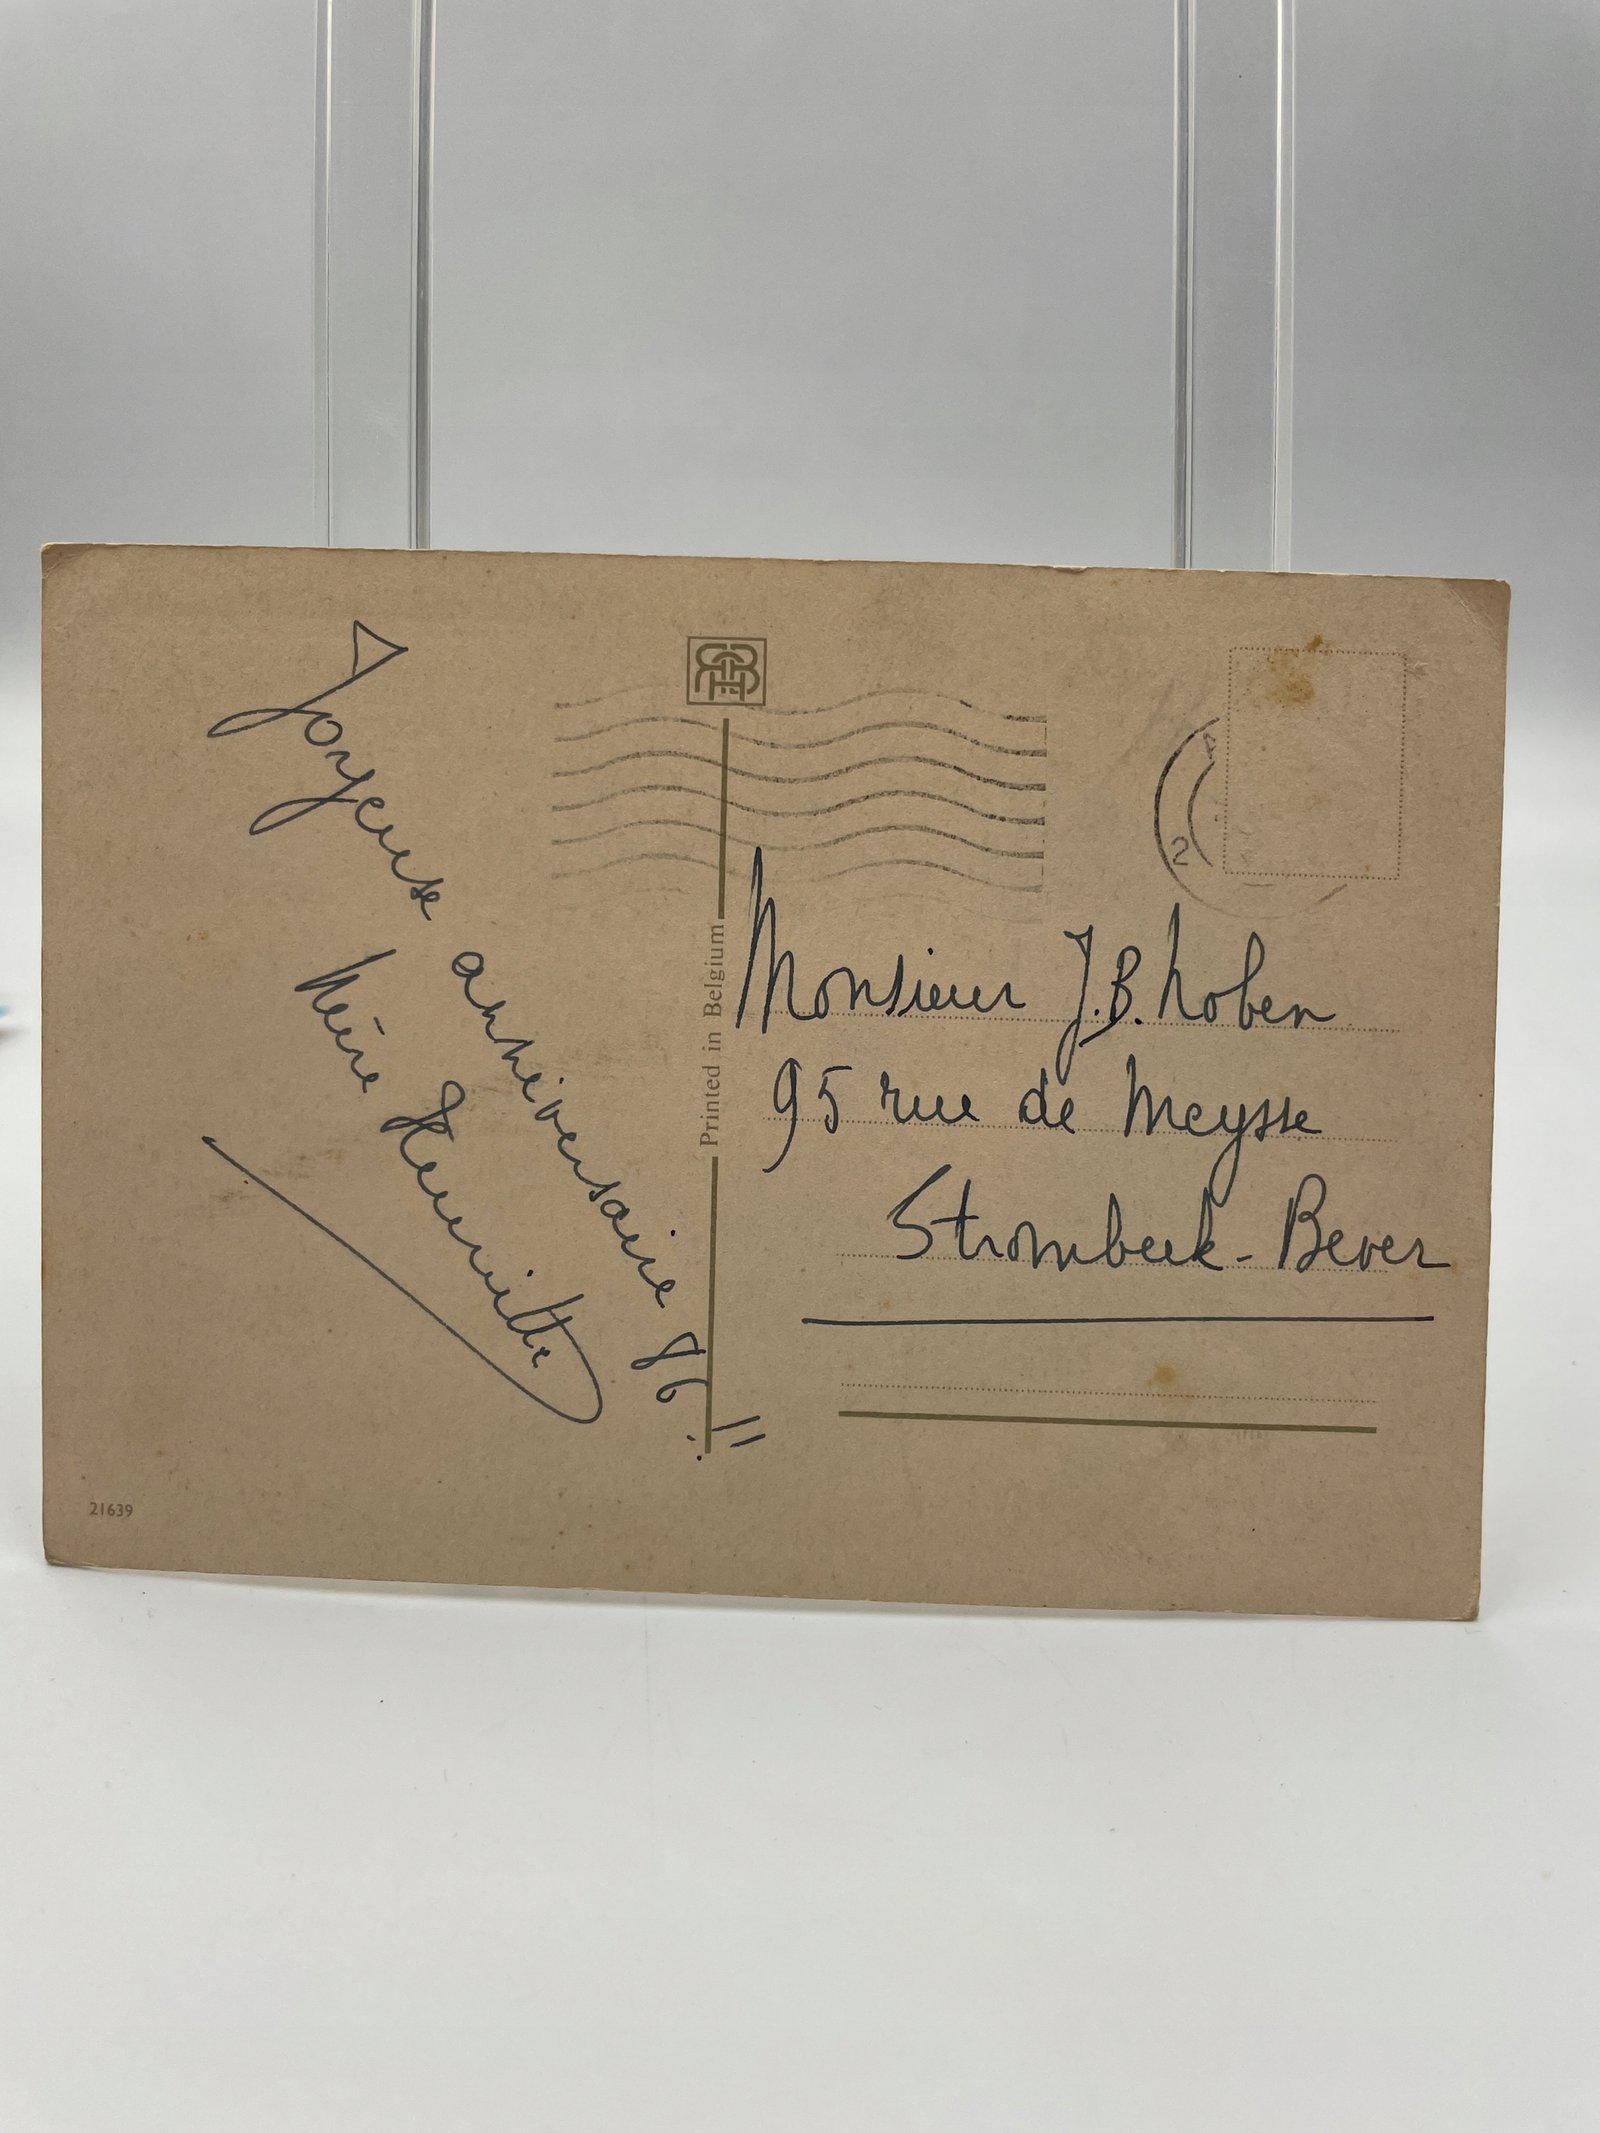 Joyeuse anniversaire 86!!
Mère Henriette
Printed in Belgium
2
Monsieur J.B. Loben
95 rue de Meysse
Strombeek-Bever
21639